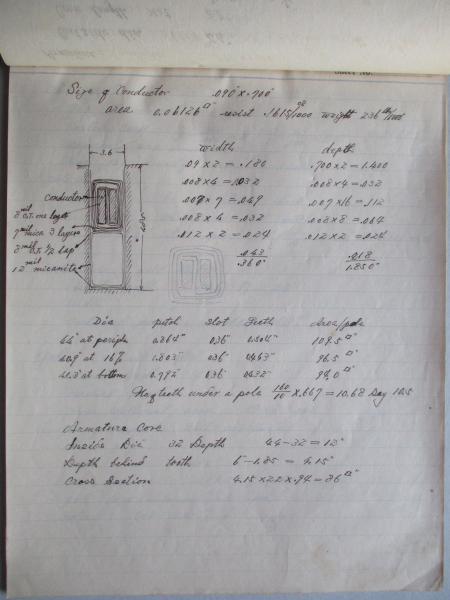 Size of Conductor .090" x .700"
area 0.06126 □" resist .1615/1000 weight 236 lb/1000
width depth
3.6
.09 x 2 = .180 .700 x 2 = 1.400
.008 x 4 = .032 .008 x 4 = .032
conductor
.007 x 7 = .049 .007 x 16 = .112
8 mil
.008 x 4 = .032 .008 x 8 = .064
7 mil mica 3 layers
.012 x 2 = .024 .012 x 2 = .024
8 mil o.t. 1/2 lap
.043 .018
12 mil micanite
.360" 1.850"
Dia pitch slot Teeth Area/pole
44" at periph 0.864" 0.36" 0.504" 109.5 □"
at 1.803" .036 0.463" 96.5 □"
at bottom 0.792 0.36 0.432" 90.0 □"
No of teeth under a pole 160/10 x .667 = 10.68 Say 10.5
Armature Core
Inside Dia 32 Depth 44-32 = 12"
Depth behind tooth 6-1.85 = 4.15"
Cross Section 4.15 x 22 x .94 = 86 □"